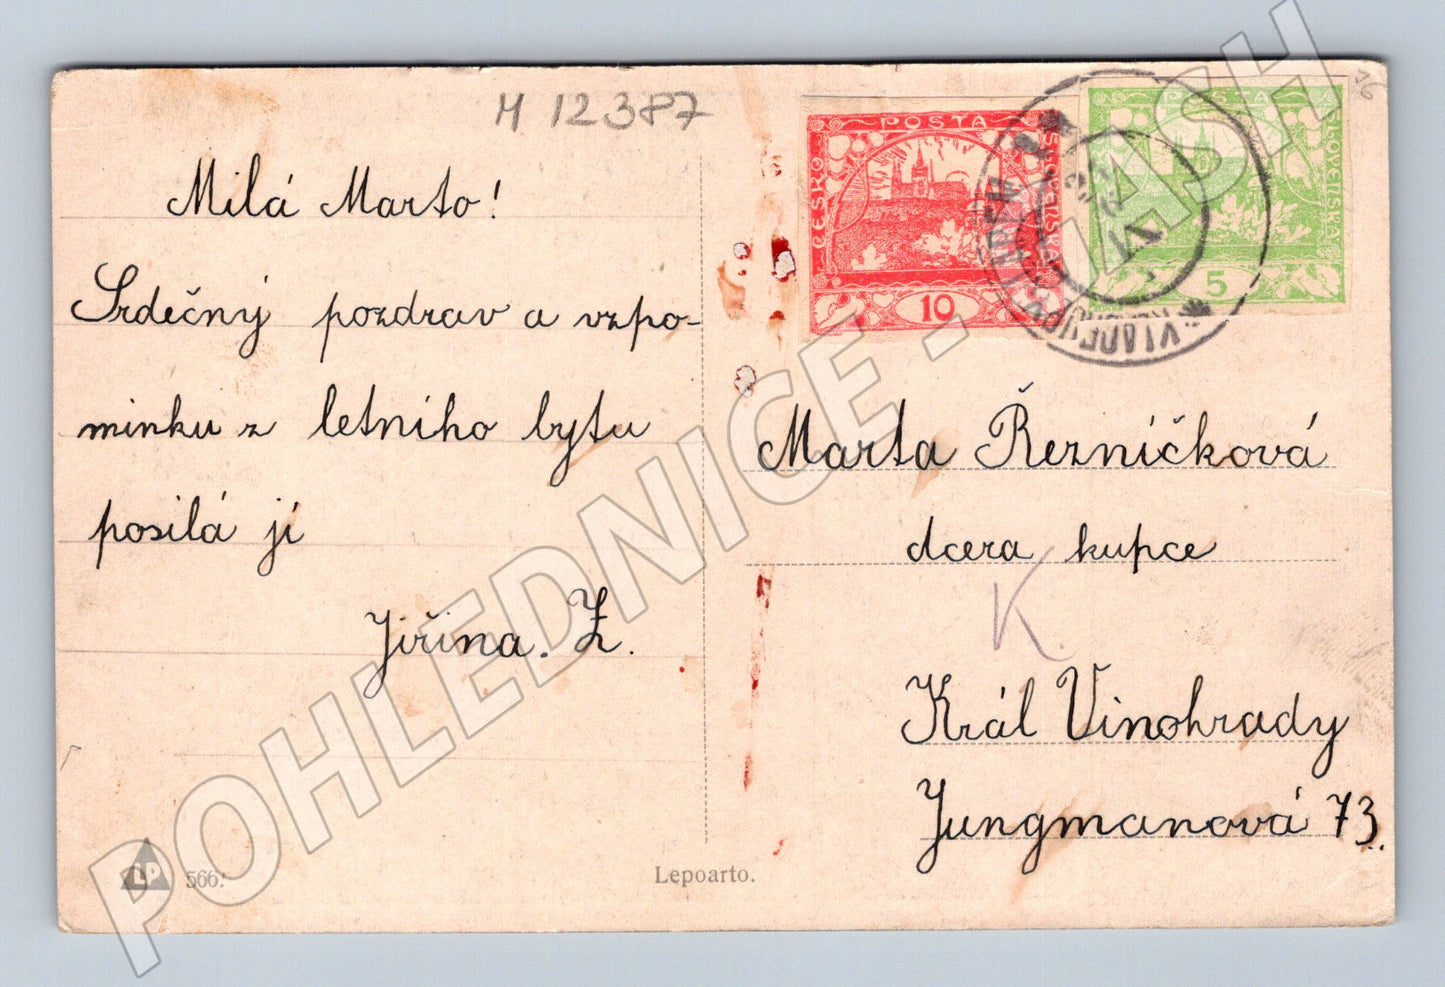 M 12387
Milá Marto!
Srdečný pozdrav a vzpo-
minku z letního bytu
posílá jí
Jiřina. Z.
POSTA
ČESKO
SLOVENSKÁ
10
POSTA
SLOVENSKÁ
5
VI
Marta Řezníčková
dcera kupce
K
Král Vinohrady
Jungmanová 73.
LP
566.
Lepoarto.
POHLEDNICE - JASH